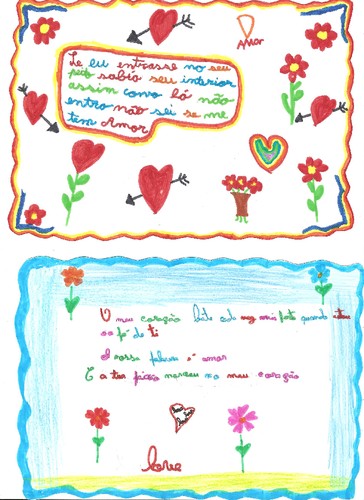 Amor
Se eu entrasse no seu
peito sabia seu interior
assim como lá não
entro não sei se me
tem Amor
O meu coração bate cada vez mais forte quando estou
ao pé de ti
A nossa palavra é amor
E a tua paixão nasceu no meu coração
love